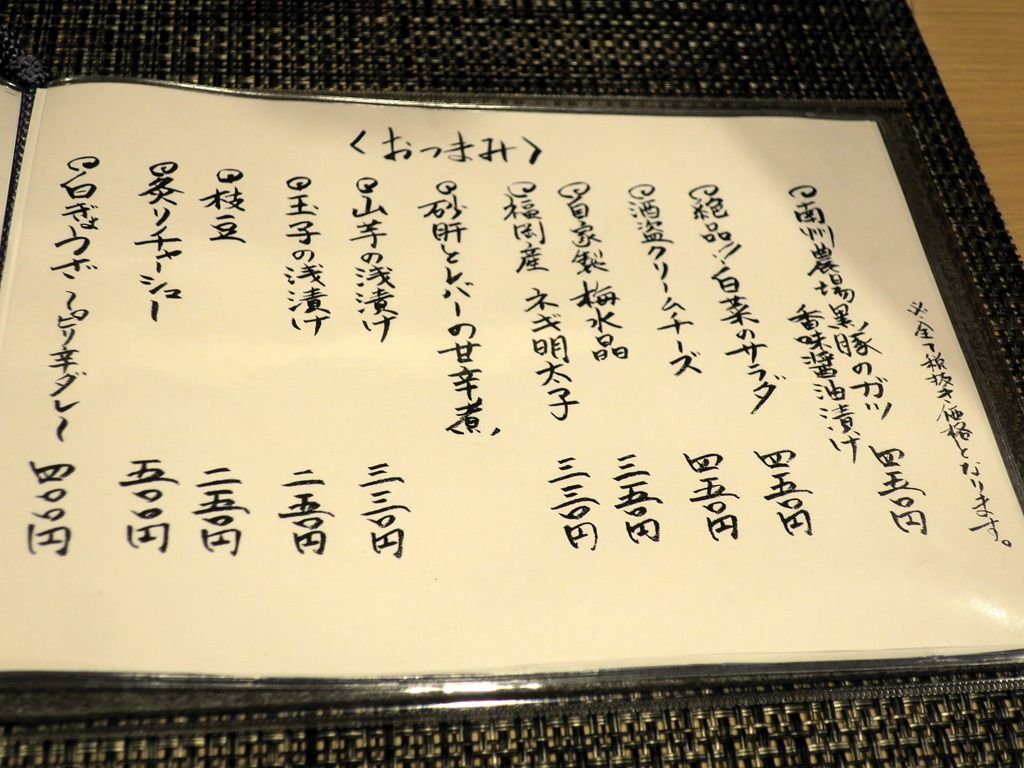 <おつまみ>
※全て税抜き価格となります。
南州農場黒豚のガツ
香味醤油漬け 四五〇円
絶品!!白菜のサラダ 四五〇円
酒盗クリームチーズ 四五〇円
自家製 梅水晶 三五〇円
福岡産 ネギ明太子 三三〇円
砂肝とレバーの甘辛煮
山芋の浅漬け 三三〇円
玉子の浅漬け 二五〇円
枝豆 二五〇円
炙りチャーシュー 五〇〇円
白ぎょうざ〜ピリ辛ダレ〜 四〇〇円